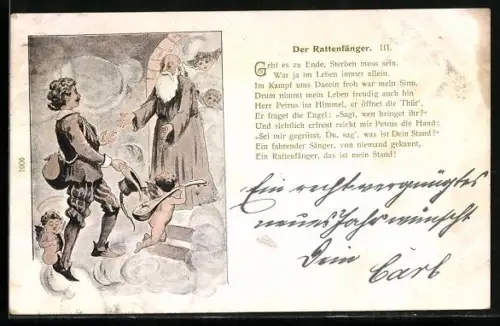 Der Rattenfänger. III.
Geht es zu Ende, Sterben muss sein,
War ja im Leben immer allein.
Im Kampf ums Dasein froh war mein Sinn,
Drum nimmt mein Leben freudig auch hin
Herr Petrus im Himmel, er öffnet die Thür',
Er fraget die Engel: „Sagt, wen bringet ihr?"
Und sichtlich erfreut reicht mir Petrus die Hand:
„Sei mir gegrüsst, Du, sag', was ist Dein Stand?"
Ein fahrender Sänger, von niemand gekannt,
Ein Rattenfänger, das ist mein Stand!
Ein recht vergnügtes
neues Jahr wünscht
Dein Carl
1006